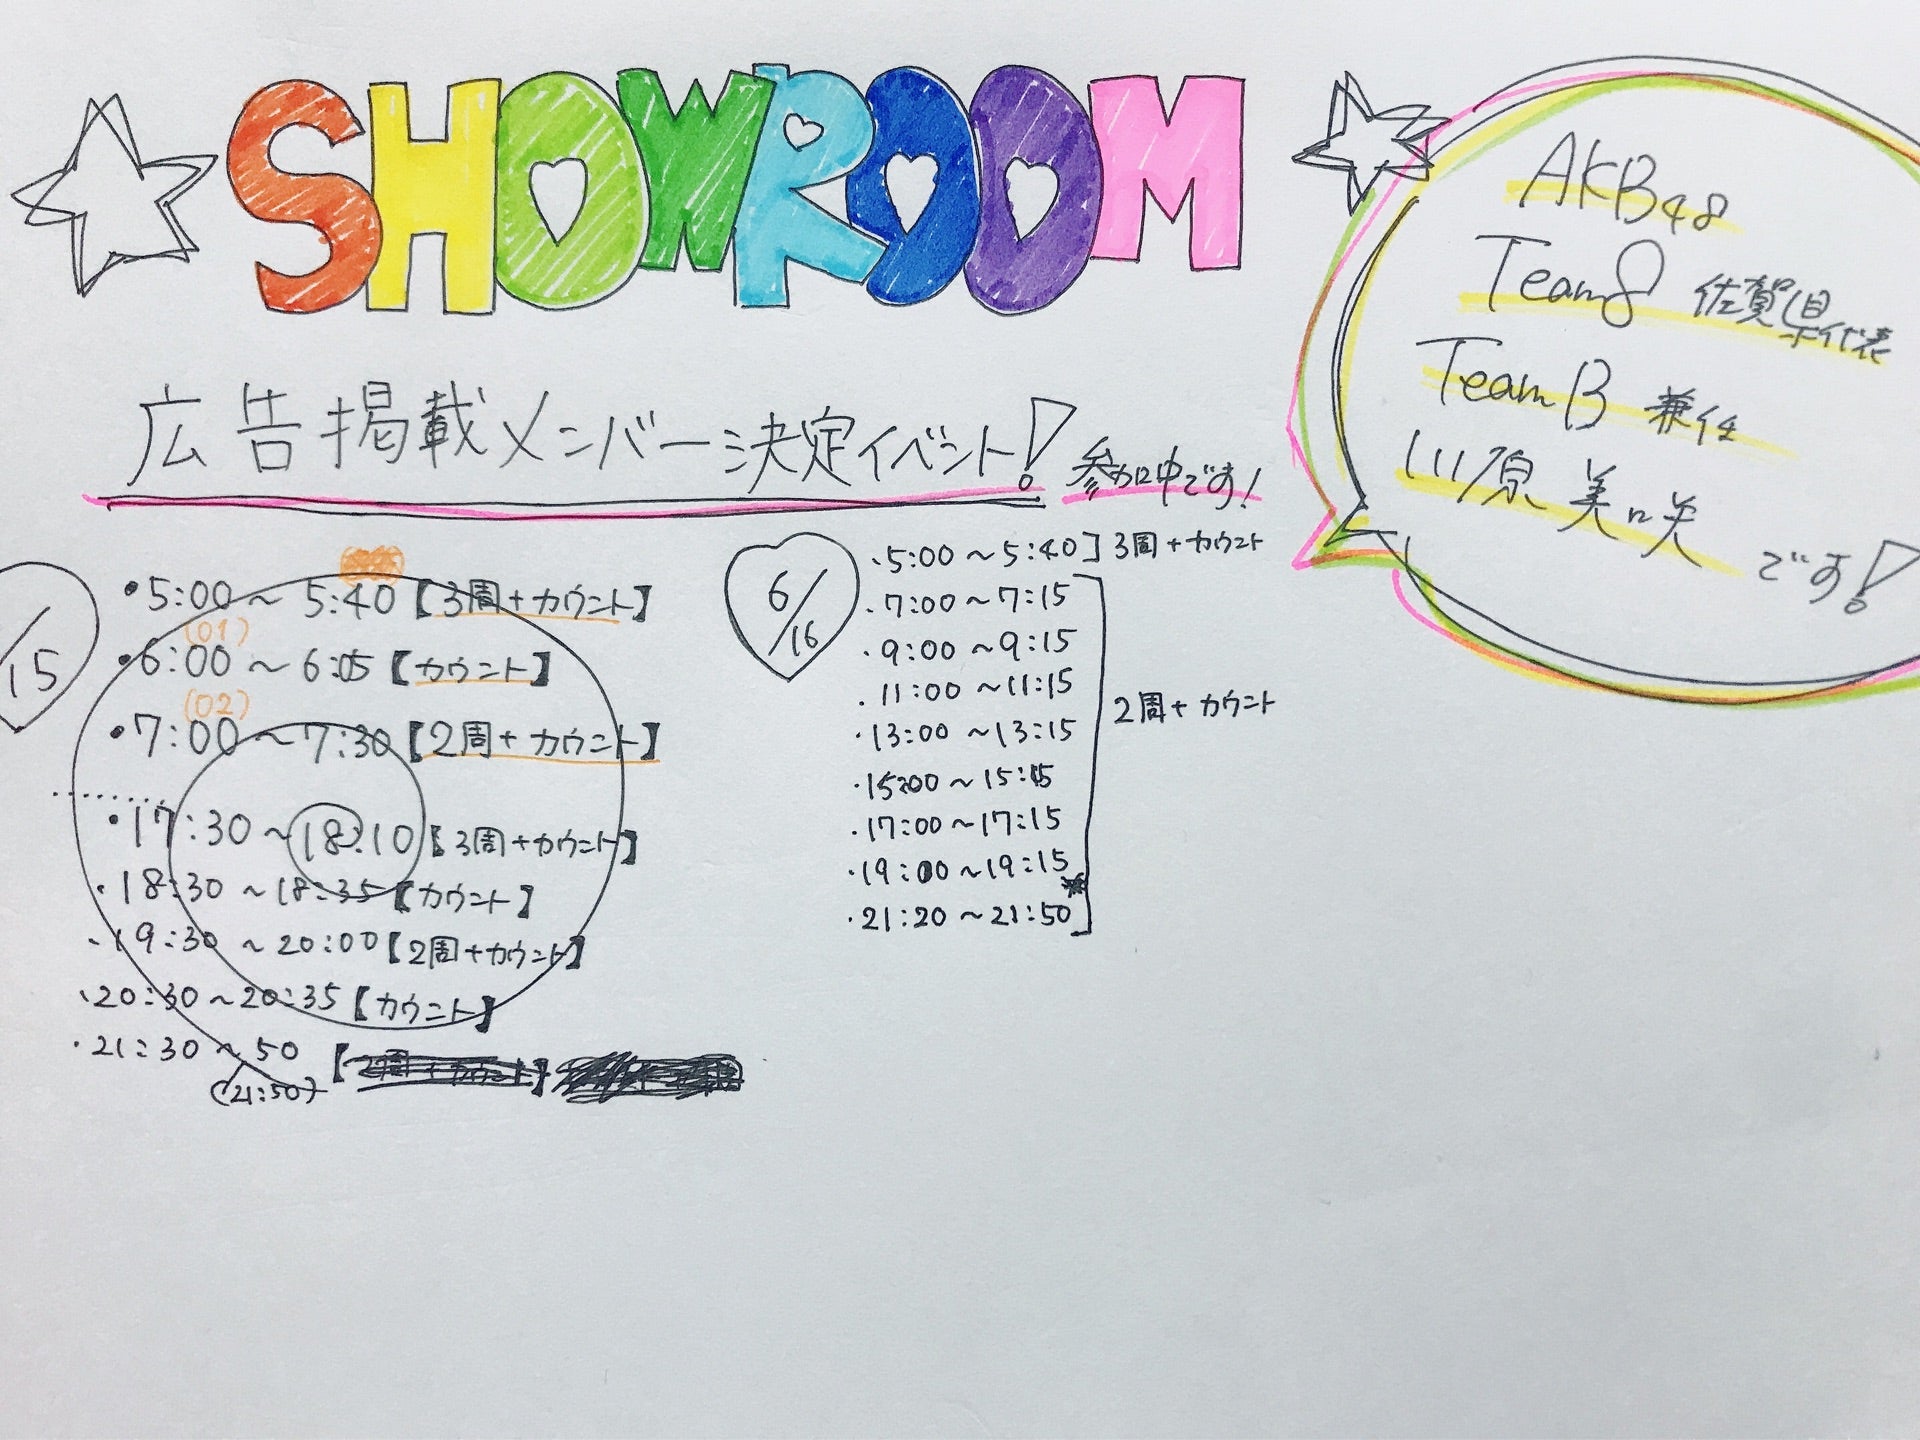 SHOWROOM
広告掲載メンバー決定イベント! 参加中です!
AKB48
Team8 佐賀県代表
TeamB 兼任
川原美咲 です!
/15
・5:00～5:40【3周+カウント】
(01)
・6:00～6:05【カウント】
(02)
・7:00～7:30【2周+カウント】
・17:30～18:10【3周+カウント】
・18:30～18:35【カウント】
・19:30～20:00【2周+カウント】
・20:30～20:35【カウント】
・21:30～50【2周+カウント】
(21:50)
6/16
・5:00～5:40]3周+カウント
・7:00～7:15
・9:00～9:15
・11:00～11:15
・13:00～13:15
・15:00～15:15
・17:00～17:15
・19:00～19:15
・21:20～21:50
2周+カウント